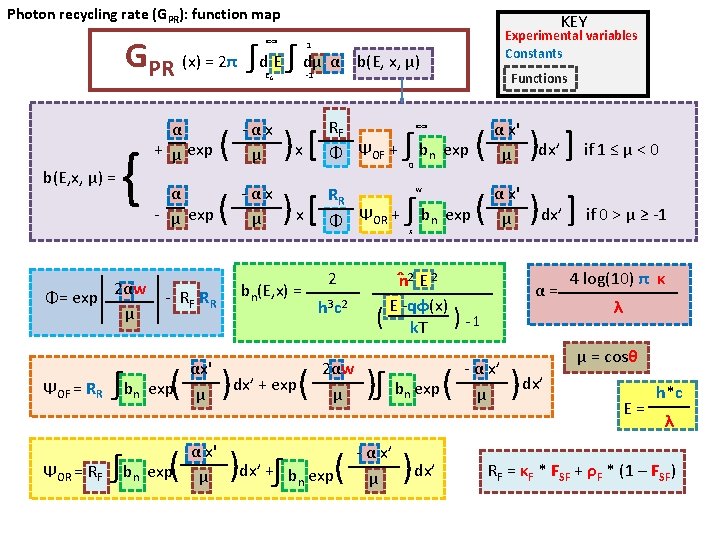 Photon recycling rate (GPR): function map
KEY
Experimental variables
Constants
Functions
GPR (x) = 2π ∫ d E ∫ dμ α b(E, x, μ)
∞ 1
Eg -1
b(E,x, μ) = {
+ α/μ exp ( - α x / μ ) x [ RF / Φ ΨOF + ∫ bn exp ( α x' / μ ) dx’ ] if 1 ≤ μ < 0
- α/μ exp ( - α x / μ ) x [ RR / Φ ΨOR + ∫ bn exp ( α x' / μ ) dx’ ] if 0 > μ ≥ -1
Φ= exp | 2αw / μ | - RF RR
bn(E,x) = 2 / h3c2 n̂2 E2 / ( E -qф(x) / kT ) - 1
α = 4 log(10) π κ / λ
μ = cosθ
ΨOF = RR ∫ bn exp ( αx' / μ ) dx’ + exp ( 2αw / μ ) ∫ bn exp ( - α x’ / μ ) dx’
E = h*c / λ
ΨOR = RF ∫ bn exp ( α x' / μ ) dx’ + ∫ bn exp ( - α x’ / μ ) dx’
RF = κF * FSF + ρF * (1 – FSF)